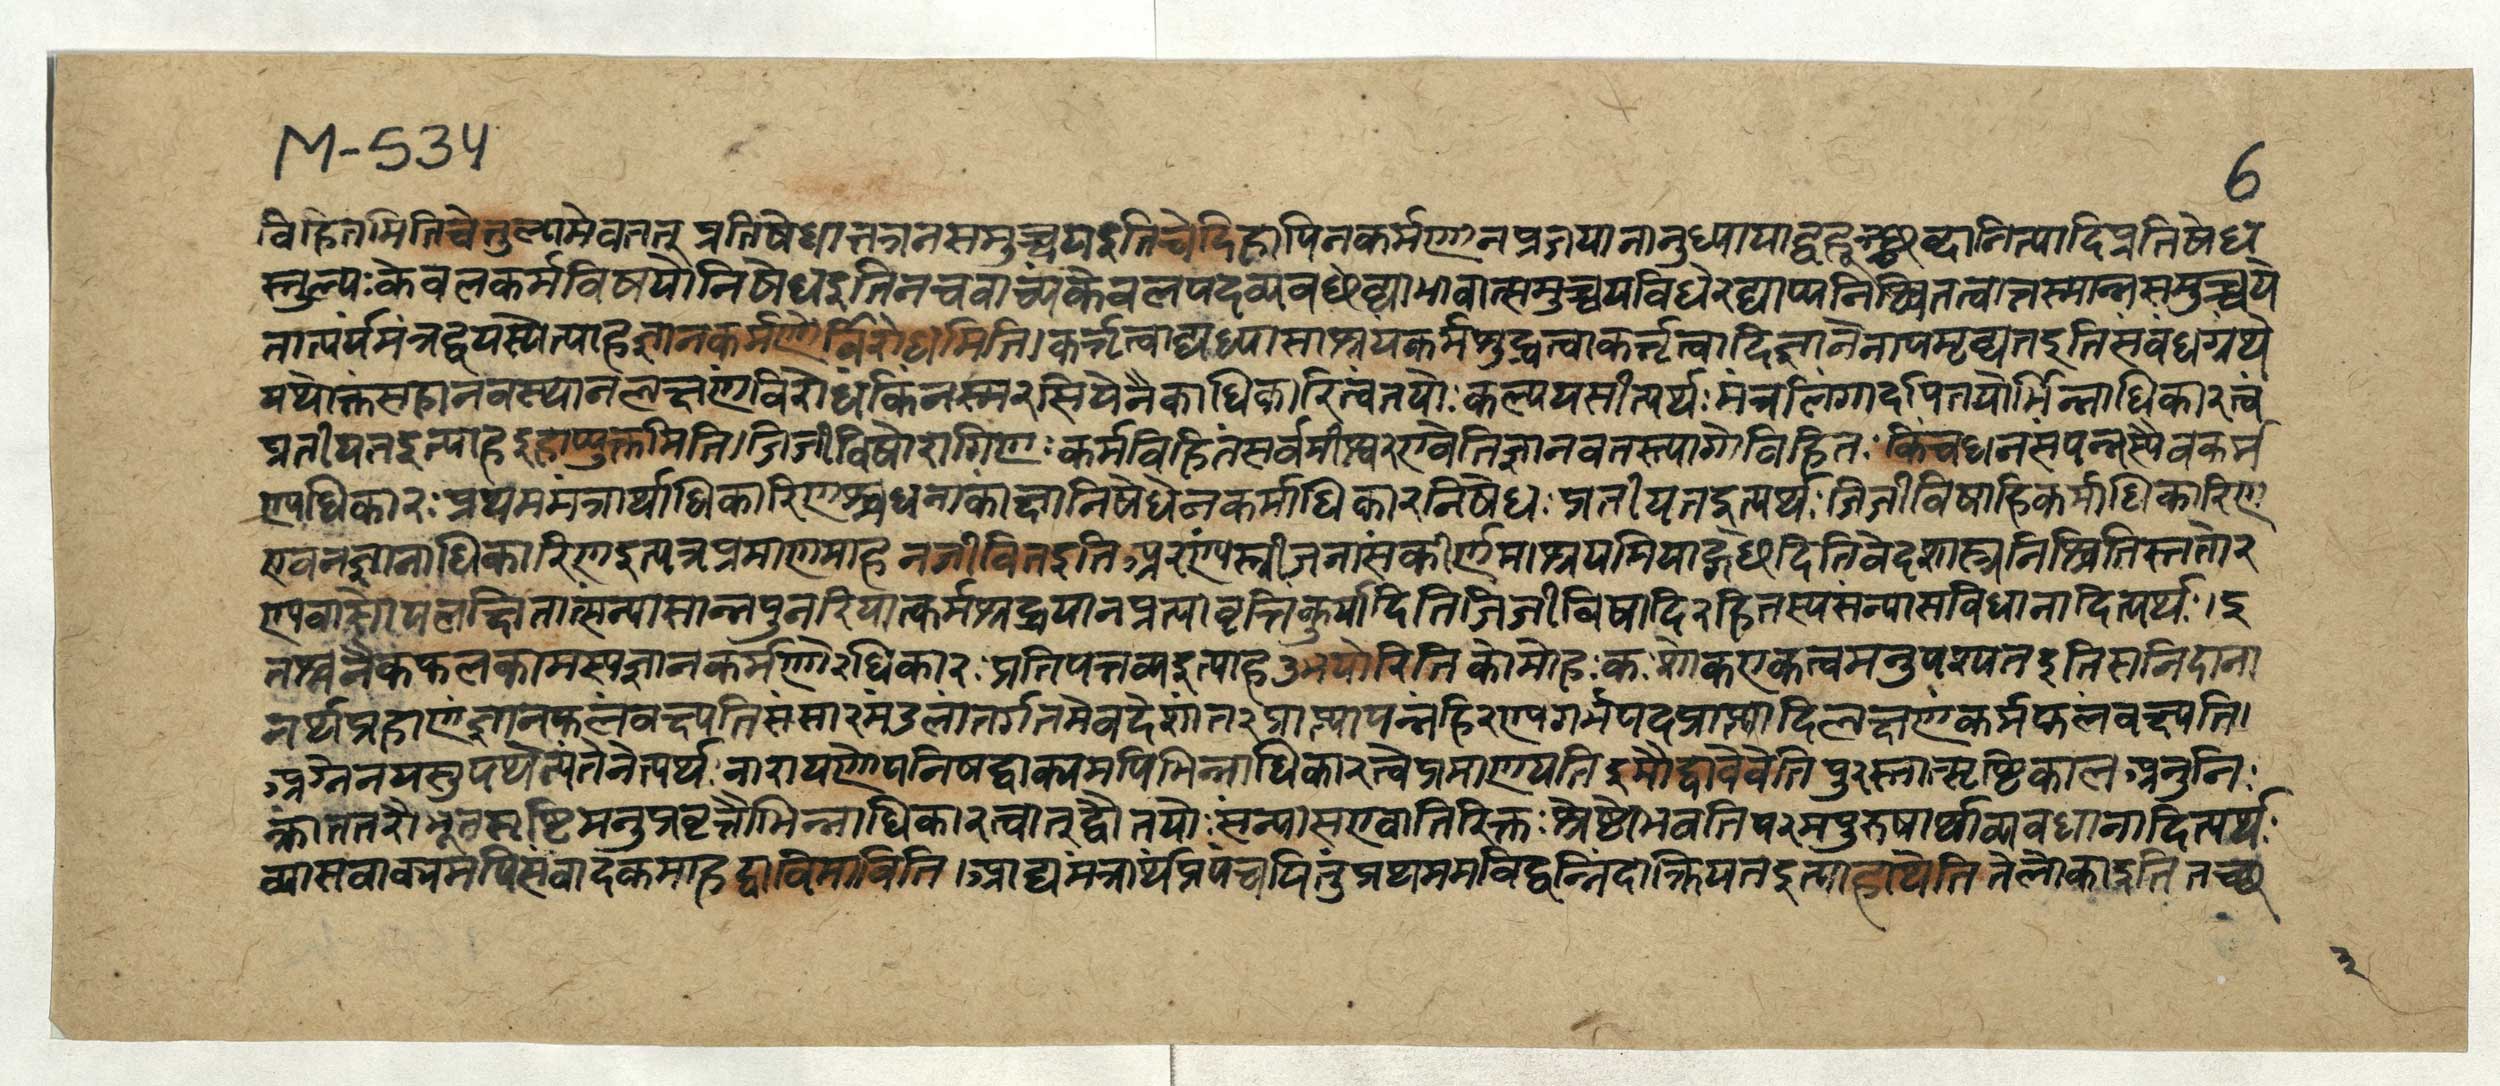 M-534
6
विहितमितिचेत्तुल्यमेवतत्तत्र प्रतिषेधात्तत्रनसमुच्चयइतिचेदिहापिनकर्मणानप्रजयानानुध्यायाद्बहून्छब्दानित्यादिप्रतिषेध
स्तुल्यःकेवलकर्मविषयोनिषेधइतिनचवाच्यंकेवलपदव्यवछेद्याभावात्समुच्चयविधेरद्याप्यनिश्चितत्वात्तस्मान्नसमुच्चये
तात्पर्यंमंत्रद्वयस्येत्याहज्ञानकर्मणोर्विरोधमिति।कर्तृत्वाद्यध्यासाश्रयकर्मशुद्धत्वाकर्तृत्वादिज्ञानेनोपमृद्यतइतिसंबंधग्रंथे
यथोक्तंसहानवस्थानलक्षणंविरोधंकिंनस्मरसियेनैकाधिकारित्वंतयोःकल्पयसीत्यर्थःमंत्रलिंगादपितयोर्भिन्नाधिकारत्वं
प्रतीयतइत्याहइहाप्युक्तमिति।जिजीविषोरागिणःकर्मविहितंसर्वमीश्वरएवेतिज्ञानवतस्त्यागोविहितःकिंचधनसंपन्नस्यैवकर्म
ण्यधिकारःप्रथममंत्रार्थाधिकारिणश्चधनाकांक्षानिषेधेनकर्माधिकारनिषेधःप्रतीयतइत्यर्थःजिजीविषाहिकर्माधिकारिण
एवनज्ञानाधिकारिणइत्यत्रप्रमाणमाहनजीवितइतिअरण्यंस्त्रीजनासंकीर्णमाश्रयमियाद्गछेदितिवेदशास्त्रनिश्चितिस्ततोर
ण्यवासोपलक्षितात्संन्यासान्नपुनरियात्कर्मश्रद्धयानप्रत्यावृत्तिंकुर्यादितिजिजीविषादिरहितस्यसंन्यासविधानादित्यर्थः।इ
तश्चनैकफलकामस्यज्ञानकर्मणोरधिकारःप्रतिपत्तव्यइत्याहउभयोरितिकोमोहःकःशोकएकत्वमनुपश्यतइतिसनिदाना
नर्थप्रहाणंज्ञानफलंवक्ष्यतिसंसारमंडलांतर्गतमेवदेशांतरप्राप्त्यापन्नंहिरण्यगर्भपदप्राप्त्यादिलक्षणंकर्मफलंवक्ष्यति।
अग्नेनयसुपथेत्यंतेनेत्यर्थःनारायणोपनिषद्वाक्यमपिभिन्नाधिकारत्वेप्रमाणयतिइमौद्वावेवेतिपुरस्तात्सृष्टिकालअनुनिः
क्रांततरौभूतसृष्टिमनुप्रवृत्तौभिन्नाधिकारत्वात्द्वौतयोःसंन्यासएवातिरिक्तःश्रेष्ठोभवतिपरमपुरुषार्थाव्यवधानादित्यर्थः
व्यासवाक्यमपिसंवादकमाहद्वाविमाविति।आद्यंमंत्रार्थंप्रपंचयितुंप्रथममविद्वन्निंदाक्रियतइत्याहाथेतितेलोकाइतितच्छ